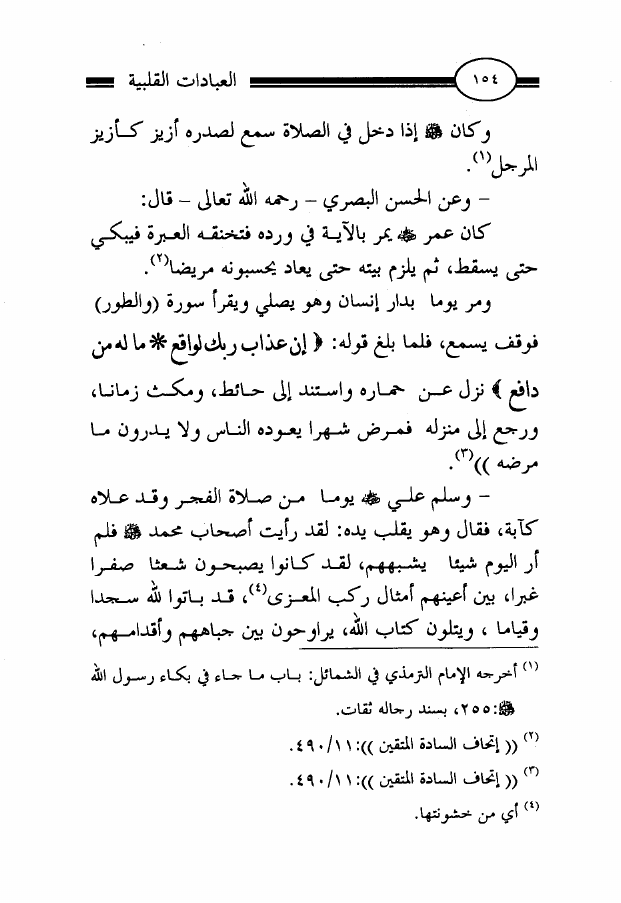 ١٥٤ العبادات القلبية
وكان ﷺ إذا دخل في الصلاة سمع لصدره أزيز كأزيز
المرجل(١).
– وعن الحسن البصري – رحمه الله تعالى – قال:
كان عمر ﷺ يمر بالآية في ورده فتخنقه العبرة فيبكي
حتى يسقط، ثم يلزم بيته حتى يعاد يحسبونه مريضا(٢).
ومر يوما بدار إنسان وهو يصلي ويقرأ سورة (والطور)
فوقف يسمع، فلما بلغ قوله: ﴿ إن عذاب ربك لواقع * ما له من
دافع ﴾ نزل عن حماره واستند إلى حائط، ومكث زمانا،
ورجع إلى منزله فمرض شهرا يعوده الناس ولا يدرون ما
مرضه ))(٣).
– وسلم علي ﷺ يوما من صلاة الفجر وقد علاه
كآبة، فقال وهو يقلب يده: لقد رأيت أصحاب محمد ﷺ فلم
أر اليوم شيئا يشبههم، لقد كانوا يصبحون شعثا صفرا
غبرا، بين أعينهم أمثال ركب المعزى(٤)، قد باتوا لله سجدا
وقياما ، ويتلون كتاب الله، يراوحون بين جباههم وأقدامهم،
(١) أخرجه الإمام الترمذي في الشمائل: باب ما جاء في بكاء رسول الله
ﷺ:٢٥٥، بسند رجاله ثقات.
(٢) (( إتحاف السادة المتقين )):١١/٤٩٠.
(٣) (( إتحاف السادة المتقين )):١١/٤٩٠.
(٤) أي من خشونتها.